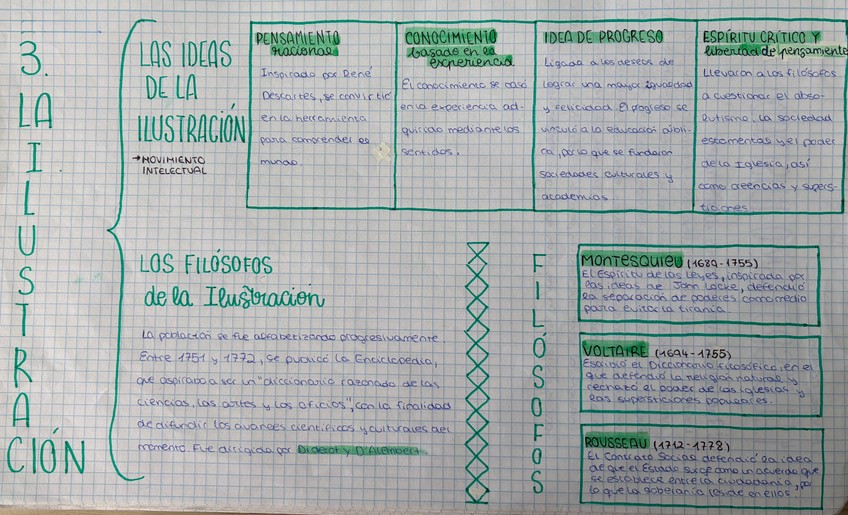 3. LA ILUSTRACIÓN
LAS IDEAS
DE LA
ILUSTRACIÓN
→ MOVIMIENTO
INTELECTUAL
PENSAMIENTO
racional
Inspirado por René
Descartes, se convirtió
en la herramienta
para comprender el
mundo.
CONOCIMIENTO
basado en la
experiencia
El conocimiento se basó
en la experiencia ad-
quirida mediante los
sentidos.
IDEA DE PROGRESO
Ligada a los deseos de
lograr una mayor igualdad
y felicidad. El progreso se
vinculó a la educación públi-
ca, por lo que se fundaron
sociedades culturales y
academias.
ESPÍRITU CRÍTICO Y
libertad de pensamiento
Llevaron a los filósofos
a cuestionar el abso-
lutismo, la sociedad
estamental y el poder
de la Iglesia, así
como creencias y supers-
ticiones.
LOS FILÓSOFOS
de la Ilustración
La población se fue alfabetizando progresivamente
Entre 1751 y 1772, se publicó la Enciclopedia,
que aspiraba a ser un "diccionario razonado de las
ciencias, las artes y los oficios", con la finalidad
de difundir los avances científicos y culturales del
momento. Fue dirigida por Diderot y D'Alembert
FILÓSOFOS
MONTESQUIEU (1689-1755)
El Espíritu de las Leyes, inspirada por
las ideas de John Locke, defendió
la separación de poderes como medio
para evitar la tiranía.
VOLTAIRE (1694-1755)
Escribió el Diccionario filosófico, en el
que defendió la religión natural y
rechazó el poder de las iglesias y
las supersticiones populares.
ROUSSEAU (1712-1778)
El Contrato Social defendió la idea
de que el Estado surge como un acuerdo que
se establece entre la ciudadanía, por
lo que la soberanía reside en ellos.